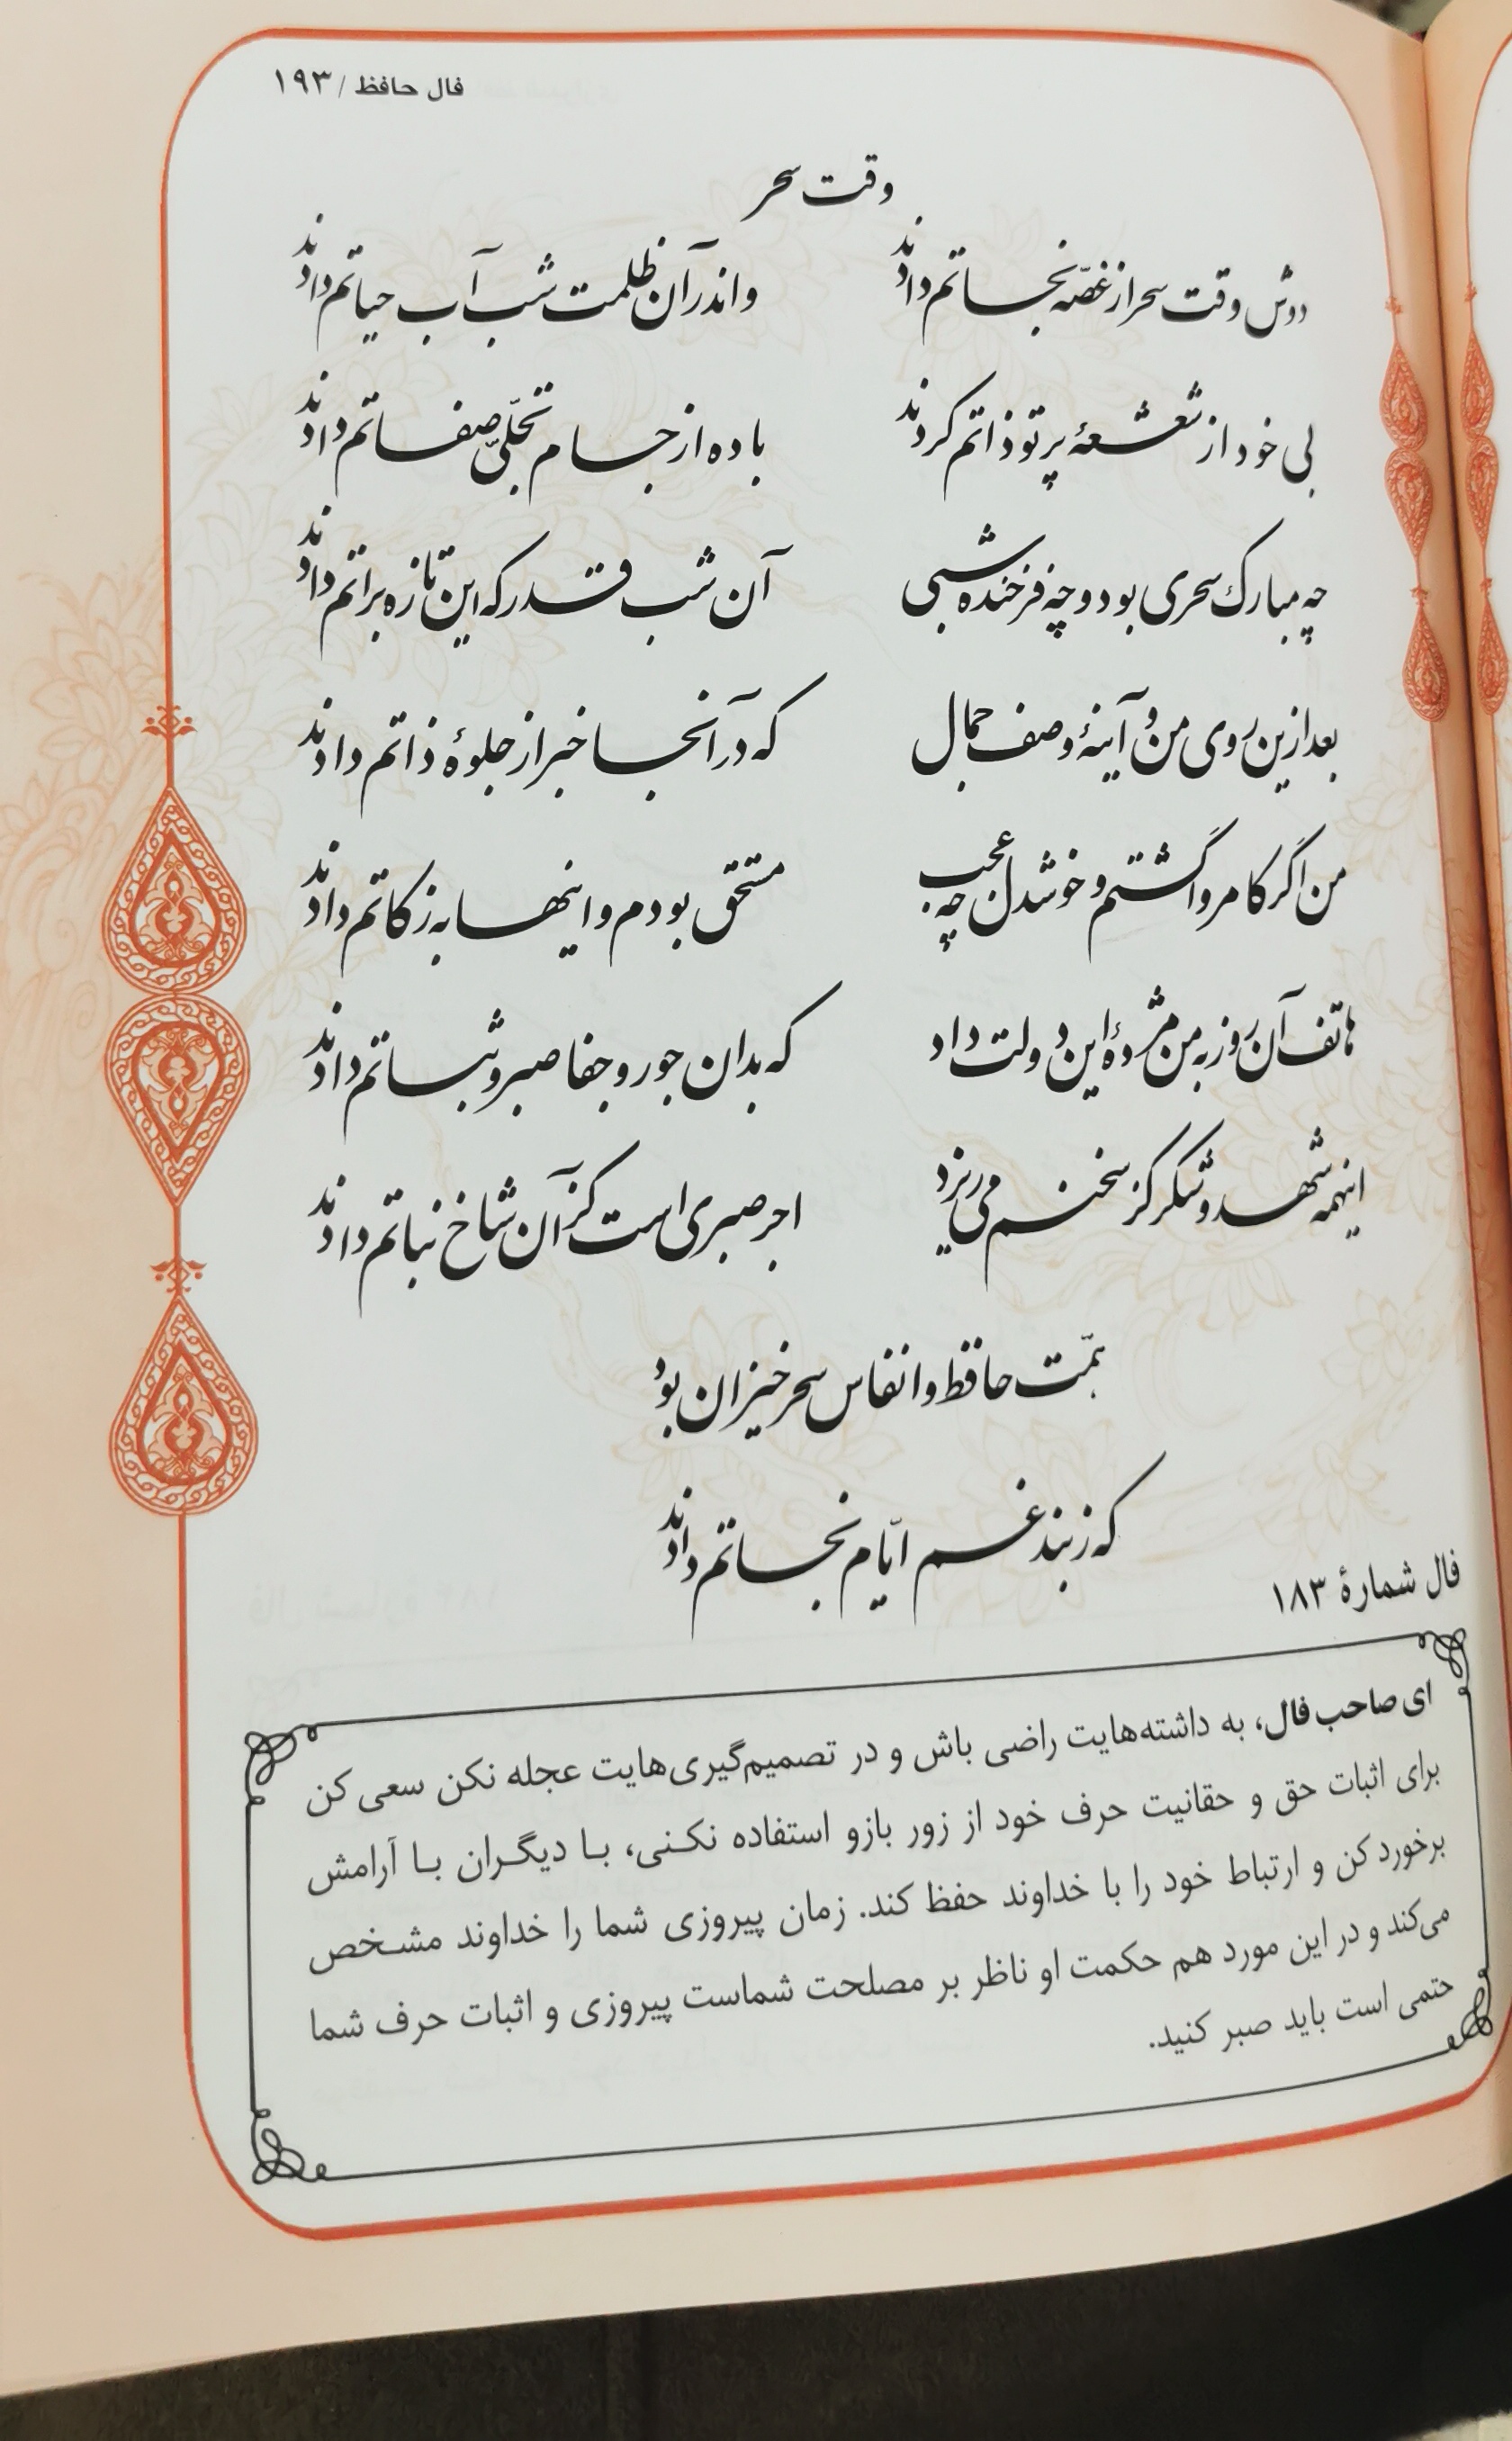 فال حافظ / ۱۹۳
وقت سحر
دوش وقت سحر از غصّه نجاتم دادند واندر آن ظلمت شب آب حیاتم دادند
بی خود از شعشعهٔ پرتو ذاتم کردند باده از جام تجلّی صفاتم دادند
چه مبارک سحری بود و چه فرخنده شبی آن شب قدر که این تازه براتم دادند
بعد ازین روی من و آینهٔ وصف جمال که در آنجا خبر از جلوهٔ ذاتم دادند
من اگر کامروا گشتم و خوشدل چه عجب مستحق بودم و اینها به زکاتم دادند
هاتف آن روز به من مژدهٔ این دولت داد که بدان جور و جفا صبر و ثباتم دادند
اینهمه شهد و شکر کز سخنم می‌ریزد اجر صبری است کز آن شاخ نباتم دادند
همّت حافظ و انفاس سحرخیزان بود
که ز بند غم ایّام نجاتم دادند
فال شمارهٔ ۱۸۳
ای صاحب فال، به داشته‌هایت راضی باش و در تصمیم‌گیری‌هایت عجله نکن سعی کن
برای اثبات حق و حقانیت حرف خود از زور بازو استفاده نکنی، با دیگران با آرامش
برخورد کن و ارتباط خود را با خداوند حفظ کند. زمان پیروزی شما را خداوند مشخص
می‌کند و در این مورد هم حکمت او ناظر بر مصلحت شماست پیروزی و اثبات حرف شما
حتمی است باید صبر کنید.